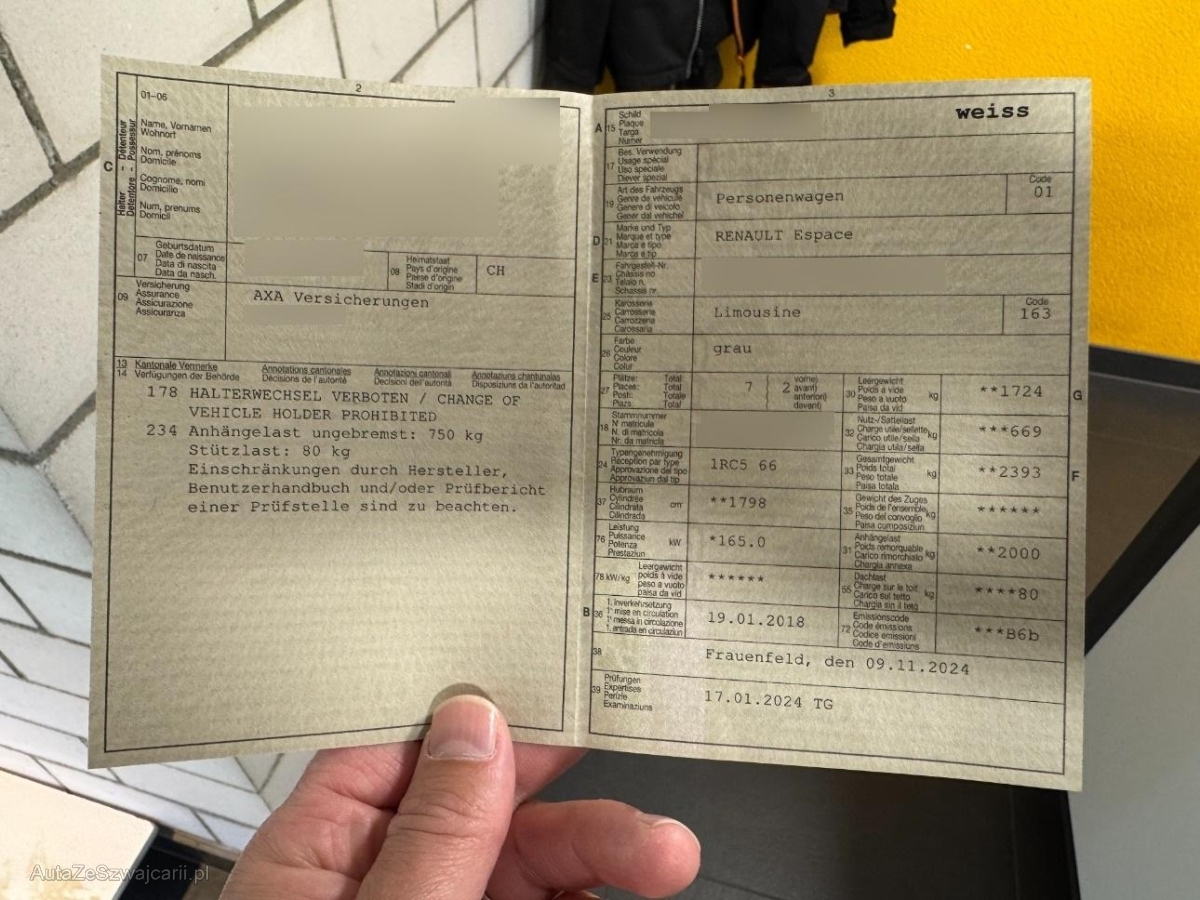 2
01-06
C
Halter - Détenteur
Detentore - Possessur
Name, Vornamen
Wohnort
Nom, prénoms
Domicile
Cognome, nomi
Domicilio
Num, prenums
Domicil
07
Geburtsdatum
Date de naissance
Data di nascita
Data da nasch.
08
Heimatstaat
Pays d'origine
Paese d'origine
Stadi d'origin
CH
09
Versicherung
Assurance
Assicurazione
Assicuranza
AXA Versicherungen
13 Kantonale Vermerke Annotations cantonales Annotazioni cantonali Annotaziuns chantunalas
14 Verfügungen der Behörde Décisions de l'autorité Decisioni dell'autorità Disposiziuns da l'autoritad
178 HALTERWECHSEL VERBOTEN / CHANGE OF
VEHICLE HOLDER PROHIBITED
234 Anhängelast ungebremst: 750 kg
Stützlast: 80 kg
Einschränkungen durch Hersteller,
Benutzerhandbuch und/oder Prüfbericht
einer Prüfstelle sind zu beachten.
3
A
15
Schild
Plaque
Targa
Numer
weiss
17
Bes. Verwendung
Usage spécial
Uso speciale
Diever spezial
19
Art des Fahrzeugs
Genre de véhicule
Genere di veicolo
Gener dal vehichel
Personenwagen
Code
01
D
21
Marke und Typ
Marque et type
Marca e tipo
Marca e tip
RENAULT Espace
E
23
Fahrgestell-Nr.
Châssis no
Telaio n.
Schassis nr.
25
Karosserie
Carrosserie
Carrozzeria
Carossaria
Limousine
Code
163
26
Farbe
Couleur
Colore
Colur
grau
27
Plätze: Total
Places: Total
Posti: Totale
Plazs: Total
7
2
vorne)
avant)
anteriori)
davant)
30
Leergewicht
Poids à vide
Peso a vuoto
Paisa da vid
kg
**1724
G
18
Stammnummer
N° matricule
N. di matricola
Nr. da matricla
32
Nutz-/Sattellast
Charge utile/sellette
Carico utile/sella
Chargia utila/sella
kg
***669
24
Typengenehmigung
Réception par type
Approvazione del tipo
Approvaziun dal tip
1RC5 66
33
Gesamtgewicht
Poids total
Peso totale
Paisa totala
kg
**2393
F
37
Hubraum
Cylindrée
Cilindrata
Cilindrada
cm
**1798
35
Gewicht des Zuges
Poids de l'ensemble
Peso del convoglio
Paisa cumposiziun
kg
******
76
Leistung
Puissance
Potenza
Prestaziun
kW
*165.0
31
Anhängelast
Poids remorquable
Carico rimorchiato
Chargia annexa
kg
**2000
78 kW/kg
Leergewicht
poids à vide
peso a vuoto
paisa da vid
******
55
Dachlast
Charge sur le toit
Carico sul tetto
Chargia sin il tetg
kg
****80
B
36
1. Inverkehrsetzung
1re mise en circulation
1a messa in circolazione
1. entrada en circulaziun
19.01.2018
72
Emissionscode
Code émissions
Codice emissioni
Code d'emissiuns
***B6b
38
Frauenfeld, den 09.11.2024
39
Prüfungen
Expertises
Perizie
Examinaziuns
17.01.2024 TG
AutaZeSzwajcarii.pl